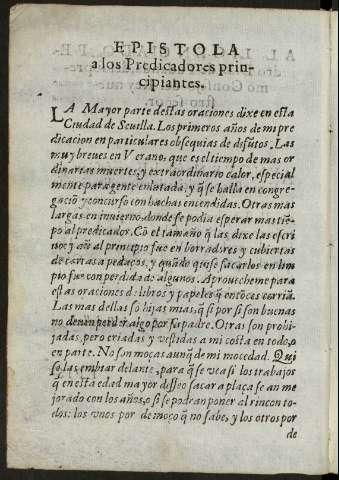 EPISTOLA
a los Predicadores prin-
cipiantes.
LA Mayor parte destas oraciones dixe en esta
Ciudad de Seuilla. Los primeros años de mi pre
dicacion en particulares obsequias de difũtos. Las
muy breues en Verano, que es el tiempo de mas or
dinarias muertes, y extraordinario calor, especial
mente para gente enlutada, y q̃ se halla en congre-
gaciõ y concurso con hachas encendidas. Otras mas
largas en inuierno, donde se podia esperar mas tiẽ-
po al predicador. Cõ el tamaño q̃ las dixe las escri
uo: y aũ al principio fue en borradores y cubiertas
de cartas a pedaços, y quãdo quise sacarlos en lim
pio fue con perdida de algunos. Aprouecheme para
estas oraciones de libros y papeles q̃ entõces corriã.
Las mas dellas sõ hijas mias, q̃ si por si son buenas
no deuen perder algo por su padre. Otras son prohi-
jadas, pero criadas y vestidas a mi costa en todo, o
en parte. No son moças aunq̃ de mi mocedad. Qui
se las embiar delante, para q̃ se vea si los trabajos
q̃ en esta edad mayor desseo sacar a plaça se an me
jorado con los años, o si se podran poner al rincon to-
dos: los vnos por de moço q̃ no sabe, y los otros por
de